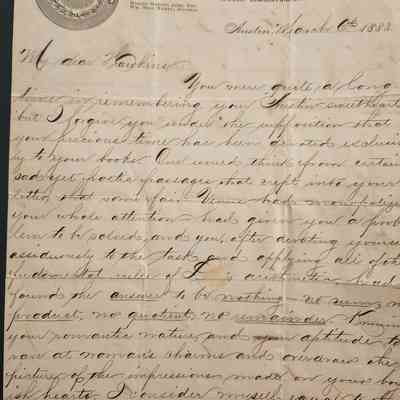 Austin, March 6th 1883.
My dear Hawkins
You were quite a long
time in remembering your Austin sweetheart
but I forgive you under the supposition that
your precious time has been devoted exclusive-
ly to your books. One would think from certain
sad yet poetic passages that crept into your
letter that some fair Venus had monopolized
your whole attention had given you a prob-
lem to be solved, and you, after devoting yourself
assiduously to the task and applying all of the
fundamental rules of arithmetic had
found the answer to be nothing no sum, no
product, no quotient, no remainder. Knowing
your romantic nature and your aptitude to
at woman's charms and overdraw the
picture of the impressions made on your boy-
ish hearts, I consider myself equal to